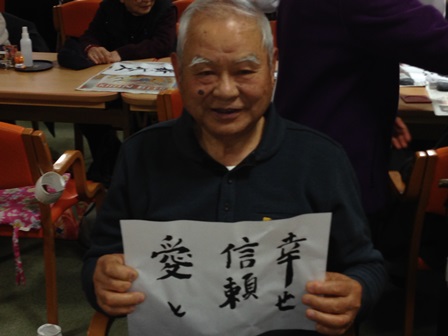 幸せ
信頼
愛と